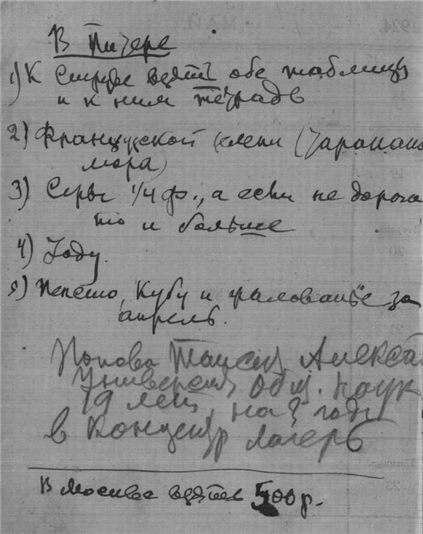 В Питере
1) К взять обе таблицы
и к ним тетрадь
2) Французской (
мора)
3) Серы 1/4 ф., а если не дорого
то и больше
4) Иоду.
5) Кубу и жалованье за
апрель.
Попова Алекса
Универси Общ. наук
19 лет, на 2 года
в Концентр лагерь
В Москве взять 500 р.